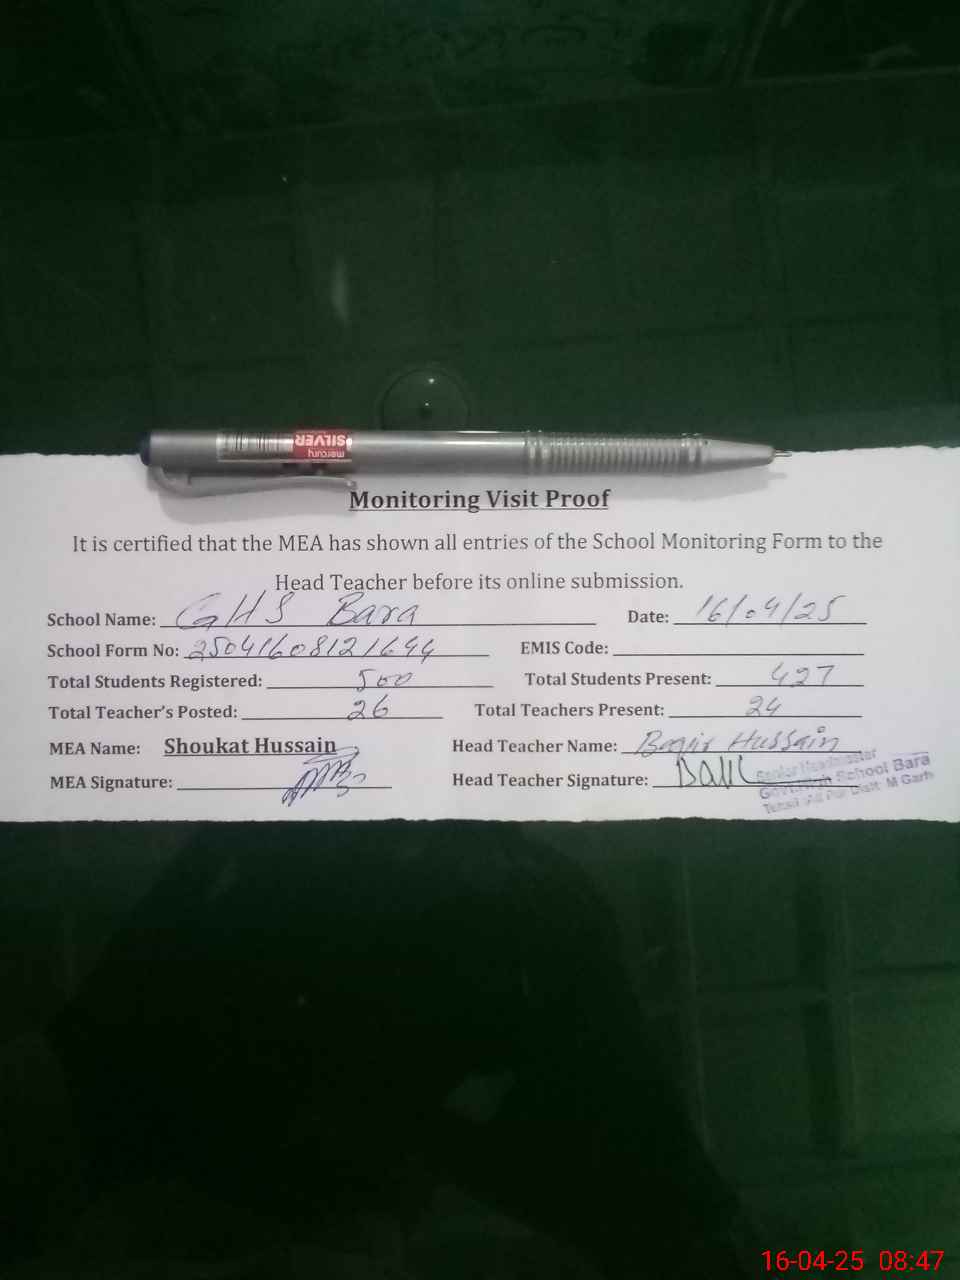 mercury
SILVER
Monitoring Visit Proof
It is certified that the MEA has shown all entries of the School Monitoring Form to the
Head Teacher before its online submission.
School Name: GHS Bara Date: 16/04/25
School Form No: 25041608121644 EMIS Code:
Total Students Registered: 500 Total Students Present: 427
Total Teacher's Posted: 26 Total Teachers Present: 24
MEA Name: Shoukat Hussain Head Teacher Name: Baqir Hussain
MEA Signature: Head Teacher Signature:
Senior Headmaster
Govt. High School Bara
Distt M Garh
16-04-25 08:47